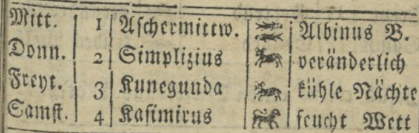 Mitt. 1 Aschermittw. Albinus B.
Donn. 2 Simplizius veränderlich
Freyt. 3 Kunegunda kühle Nächte
Samst. 4 Kasimirus feucht Wett